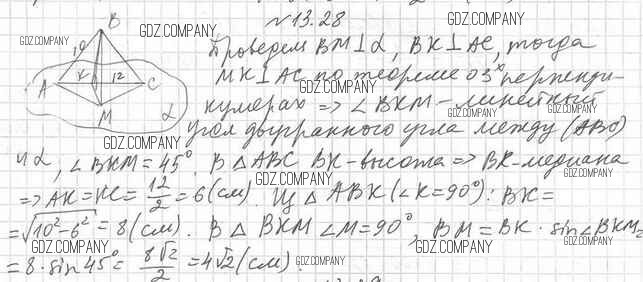 №13.28
GDZ.COMPANY
GDZ.COMPANY
GDZ.COMPANY
B
10
K
12
A
C
M
α
Проведем BM⊥α, BK⊥AC, тогда
GDZ.COMPANY
MK⊥AC по теореме о 3х перпенди-
GDZ.COMPANY
кулярах => ∠BKM - линейный
GDZ.COMPANY
угол двугранного угла между (ABC)
GDZ.COMPANY
GDZ.COMPANY
и α, ∠BKM = 45°. В △ABC BK-высота => BK-медиана
GDZ.COMPANY
GDZ.COMPANY
=> AK = KC = 12/2 = 6 (см). Из △ABK (∠K = 90°): BK =
= √10²-6² = 8 (см). В △BKM ∠M = 90°, BM = BK · sin∠BKM =
GDZ.COMPANY
GDZ.COMPANY
GDZ.COMPANY
= 8 · sin 45° = 8√2/2 = 4√2 (см).
GDZ.COMPANY